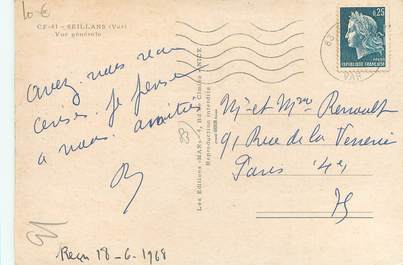 10€
CP-81 - SEILLANS (Var)
Vue générale
avez-vous
cerises. je pense
à vous. amitiés
Les Editions "MAR", NICE
Reproduction interdite
0,25
REPUBLIQUE FRANÇAISE
83
VAR
Mr et Mme Renault
91 Rue de la Verrerie
Paris 4e
Reçu 18-6-1968